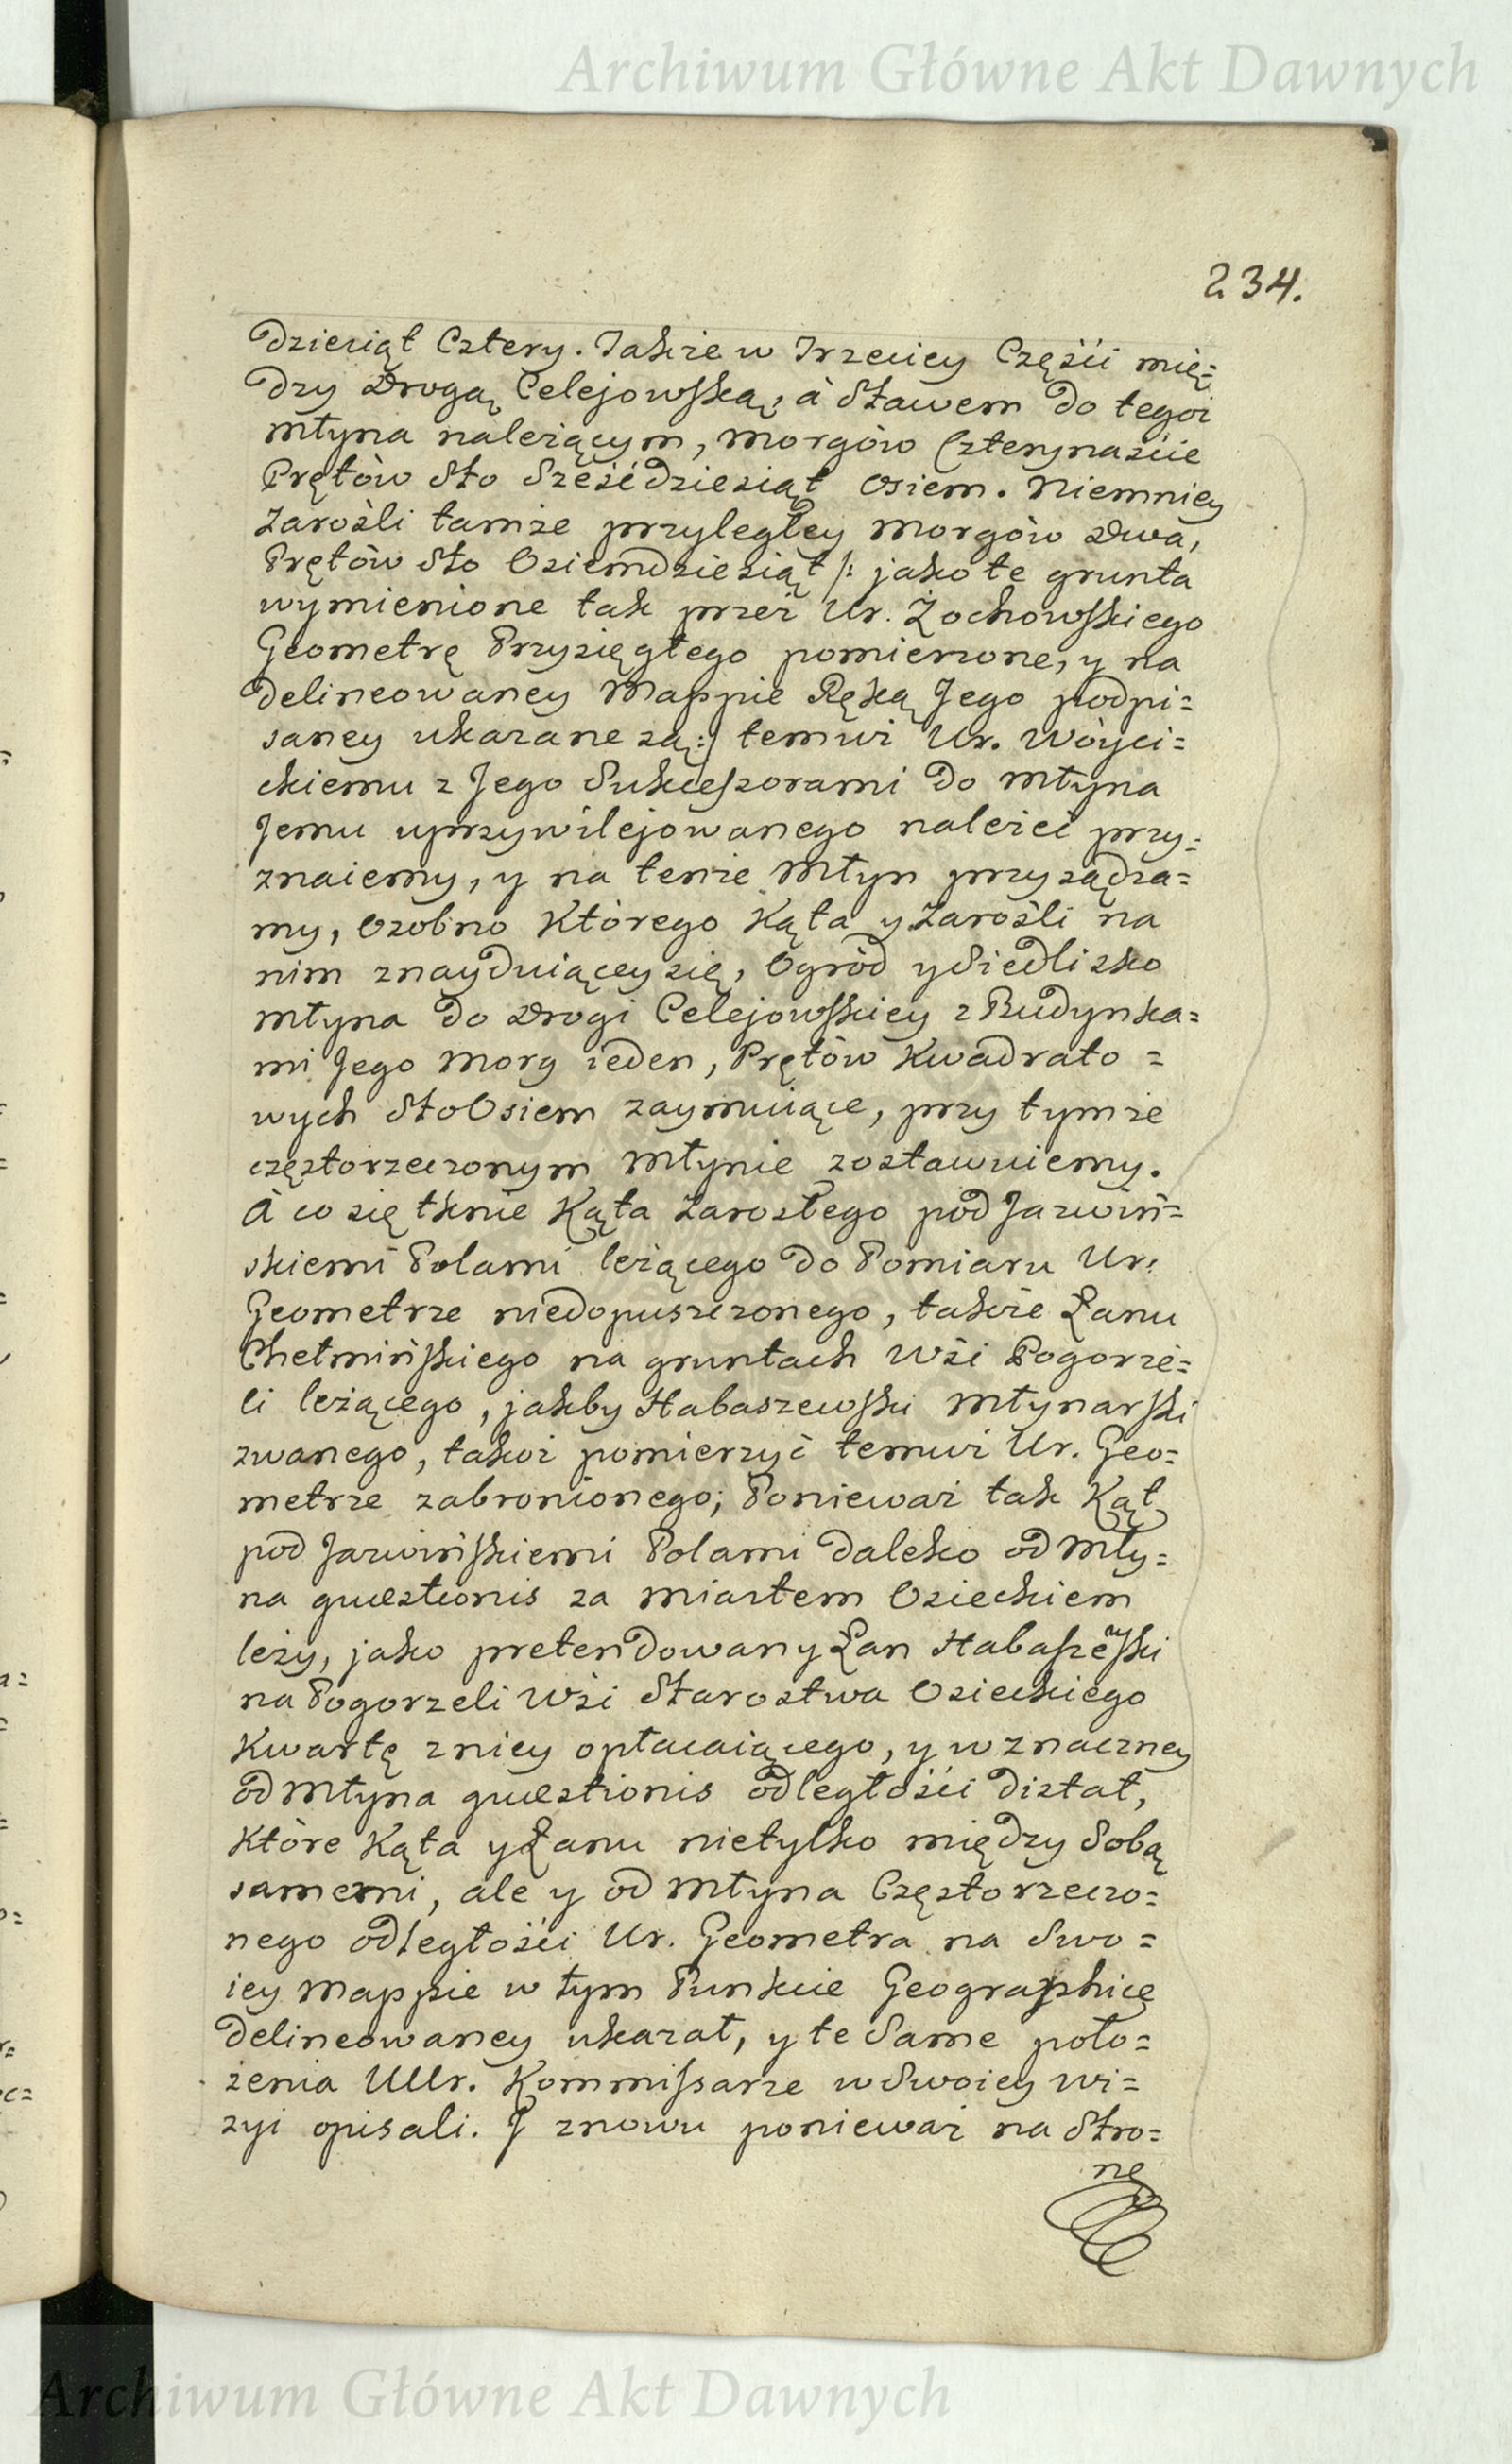 Archiwum Główne Akt Dawnych
234.
dziesiąt Cztery. Także w Trzeciey Części mię=
dzy Drogą Celejowską, à Stawem do tegoż
młyna należącym, Morgów Czternaście
Prętów Sto Sześćdziesiąt Osiem. Niemniey
Zarośli tamże przyległey Morgów Dwa,
Prętów Sto Osiemdziesiąt /: jako te grunta
wymienione tak przez Ur. Żochowskiego
Geometrę Przysięgłego pomierzone, y na
delineowaney Mappie Ręką Jego podpi=
saney ukazane są :/ temuż Ur. Wóyci=
ckiemu z Jego Sukcessorami do Młyna
Jemu uprzywilejowanego należeć przy=
znaiemy, y na tenże Młyn przysądza=
my, Osobno którego Kąta y Zarośli na
nim znayduiącey się, Ogród y Siedlisko
Młyna do Drogi Celejowskiey z Budynka=
mi Jego Morg ieden, Prętów Kwadrato =
wych Sto Osiem zaymuiące, przy tymże
częstorzeczonym Młynie zostawuiemy.
À co się tknie Kąta Zarosłego pod Jaźwiń=
skiemi Polami leżącego do Pomiaru Ur.
Geometrze niedopuszczonego, także Łanu
Chełmińskiego na gruntach Wśi Pogorze=
li leżącego, jakby Habaszewski Młynarski
zwanego, takoż pomierzyć temuż Ur. Geo=
metrze zabronionego; Ponieważ tak Kąt
pod Jaźwińskiemi Polami daleko od Mły=
na quæstionis za Miastem Osieckiem
leży, jako pretendowany Łan Habaszewski
na Pogorzeli Wśi Starostwa Osieckiego
Kwartę zniey opłacaiącego, y w znaczney
od Młyna quæstionis odległości distat,
które Kąta y Łanu nietylko między Sobą
samemi, ale y od Młyna Częstorzeczo=
nego odległości Ur. Geometra na Swo=
iey Mappie w tym Punkcie Geographicę
delineowaney ukazał, y te Same poło=
żenia UUr. Kommissarze w Swoiey wi=
zyi opisali. J znowu ponieważ na Stro=
nę
Archiwum Główne Akt Dawnych